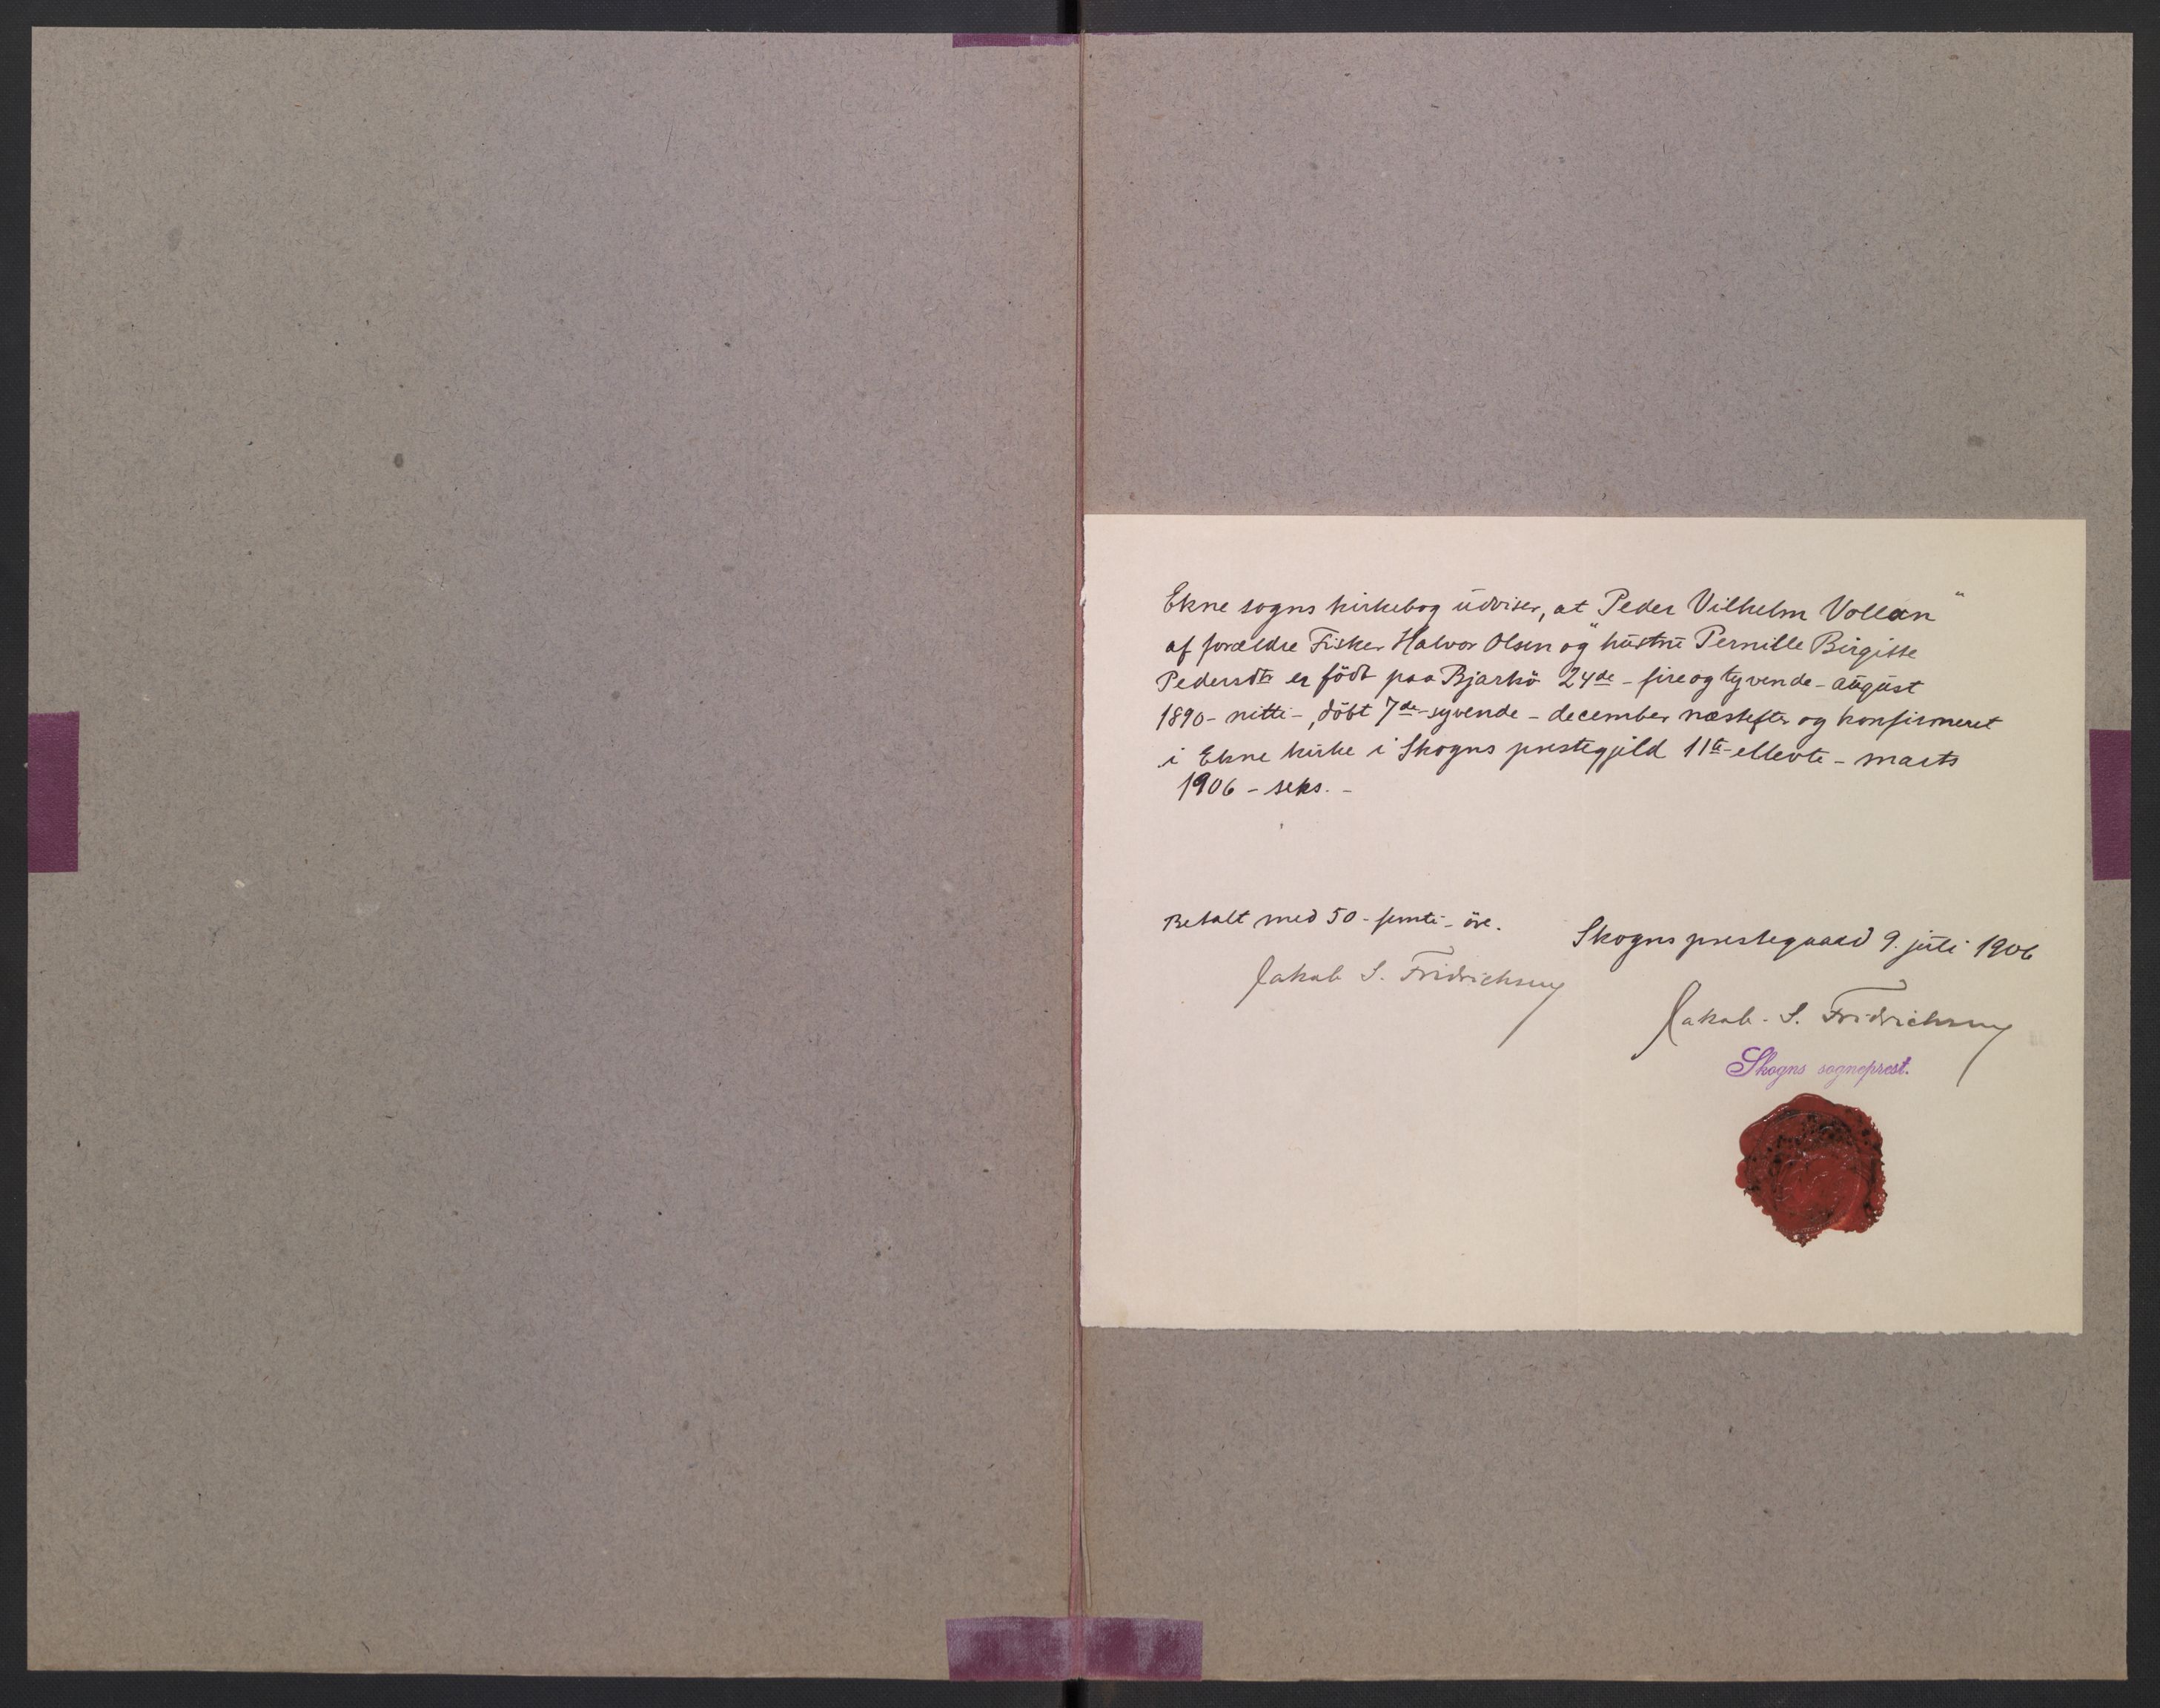 Ekne sogns kirkebog udviser, at "Peder Vilhelm Vollan"
af forældre Fisker Halvor Olsen og hustru Pernille Birgitte
Pedersdtr er födt paa Bjarkö 24de - fire og tyvende - august
1890 - nitti -, döbt 7de - syvende - december næstefter og konfirmeret
i Ekne kirke i Skogns prestegjeld 11te - ellevte - marts
1906 - seks. -
Betalt med 50 - femti - öre.
Jakob S. Fridrichsen
Skogns prestegaard 9. juli 1906
Jakob S. Fridrichsen
Skogns sogneprest.